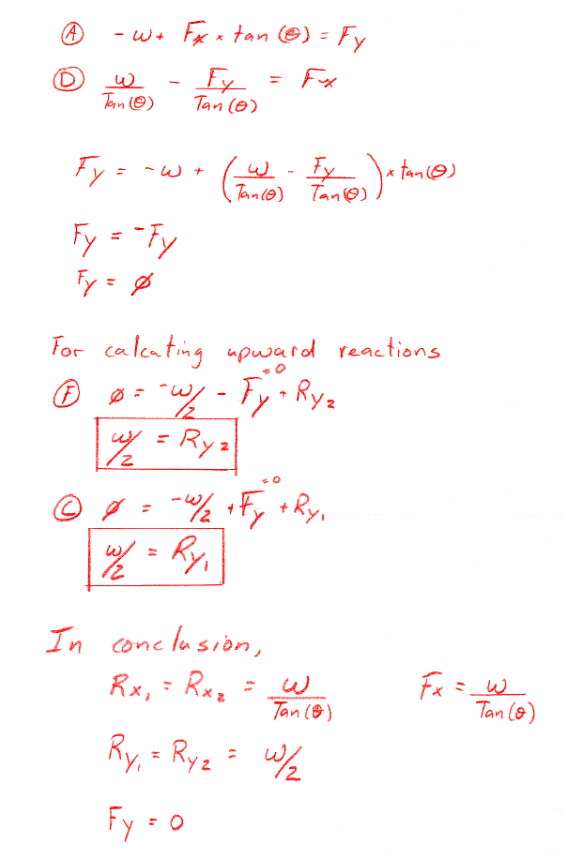 Ⓐ -w + Fx × tan(θ) = Fy
Ⓓ w/Tan(θ) - Fy/Tan(θ) = Fx
Fy = -w + (w/Tan(θ) - Fy/Tan(θ)) × tan(θ)
Fy = -Fy
Fy = ∅
For calcating upward reactions
Ⓕ ∅ = -w/2 - Fy + Ry₂
=0
w/2 = Ry₂
Ⓒ ∅ = -w/2 + Fy + Ry₁
=0
w/2 = Ry₁
In conclusion,
Rx₁ = Rx₂ = w/Tan(θ) Fx = w/Tan(θ)
Ry₁ = Ry₂ = w/2
Fy = 0